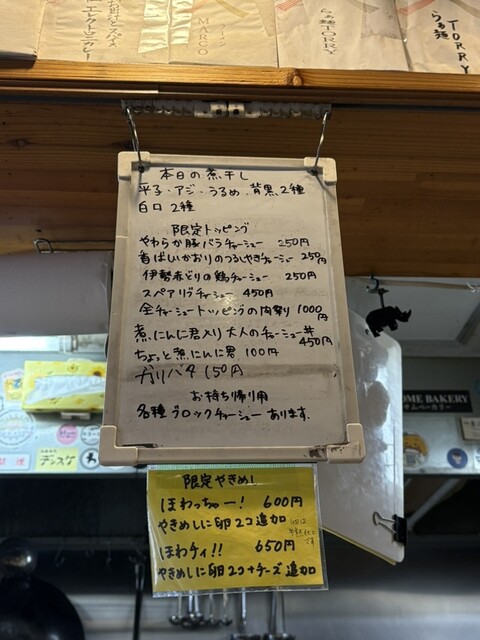 MARCO
らぁ麺TORRY
らぁ麺
TORRY
本日の煮干し
平子・アジ・うるめ、背黒2種
白口 2種
限定トッピング
やわらか豚バラチャーシュー 250円
香ばしいかおりのつるしやきチャーシュー 250円
伊勢赤どりの鶏チャーシュー 250円
スペアリブチャーシュー 450円
全チャーシュートッピングの肉祭り 1000円
煮にんに君入り大人のチャーシュー丼 450円
ちょっと煮にんに君 100円
ガリバタ 150円
お持ち帰り用
各種ブロックチャーシューあります。
OME BAKERY
サムベーカリー
デンスケ
限定やきめし
ほわっちゃー! 600円
やきめしに卵2コ追加
ほわチィ!! 650円
やきめしに卵2コ+チーズ追加